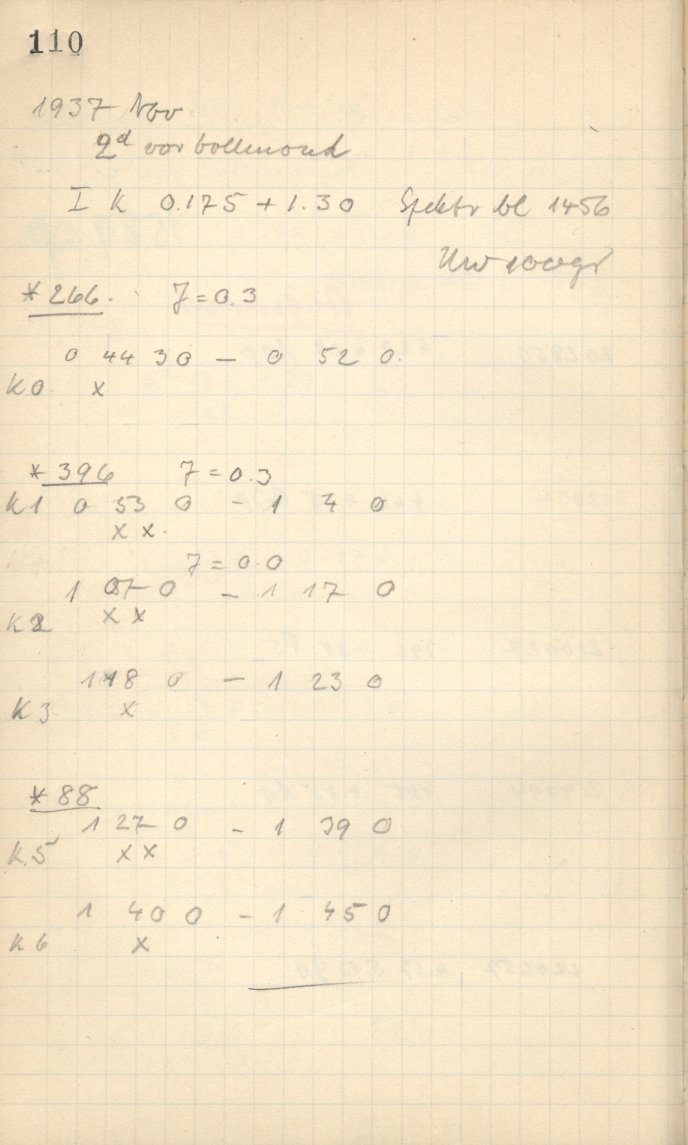 110
1937 Nov
2d vor Vollmond
I K 0.175 + 1.30 Spektr bl 1456
* 266. J = 0.3
0 44 30 — 0 52 0.
K0 x
* 396 J = 0.3
K1 0 53 0 – 1 4 0
x x.
J = 0.0
1 07 0 – 1 17 0
K2 x x
1 18 0 – 1 23 0
K3 x
* 88
1 27 0 – 1 39 0
K.5 x x
1 40 0 – 1 45 0
K6 x